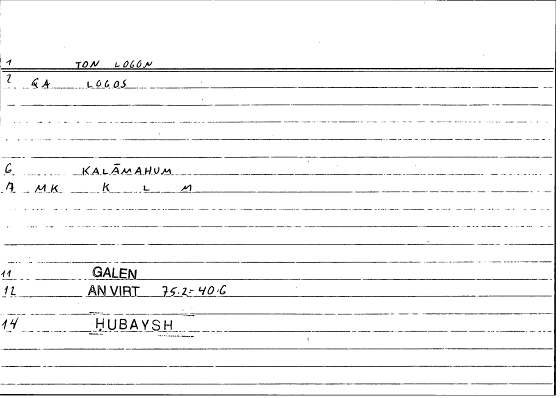 1 TON LOGON
2 GA LOGOS
6 KALĀMAHUM
7 MK K L M
11 GALEN
12 AN VIRT 75.2=40.6
14 ḤUBAYSH